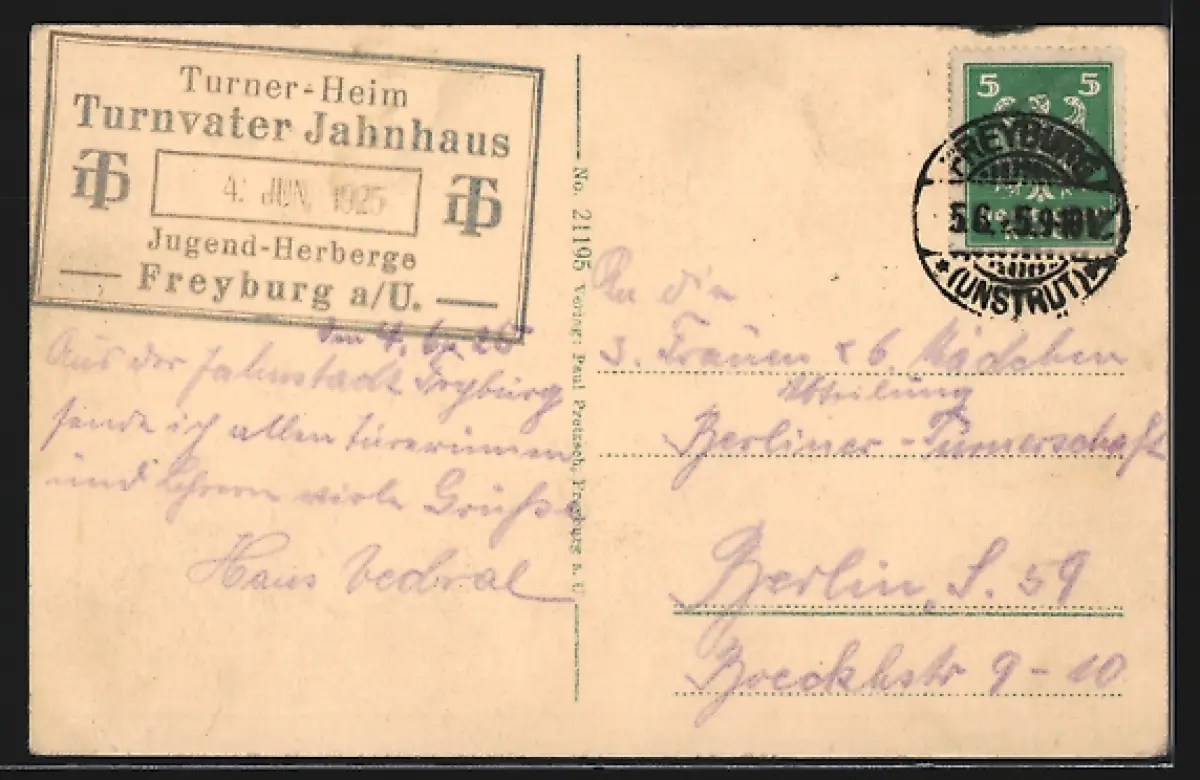 Turner-Heim
Turnvater Jahnhaus
DT 4. JUN. 1925 DT
Jugend-Herberge
— Freyburg a/U. —
Den 4. 6. 25
Aus der Jahnstadt Freyburg
sende ich allen Turnerinnen
und Lehrern viele Grüße
Hans Vedral
No. 21195 Verlag: Paul Pretzsch, Freyburg a. U.
5 5
FREYBURG
5.6. 9-10V
* (UNSTRUT) *
An die
3. Frauen & 6. Mädchen
Abteilung
Berliner-Turnerschaft
Berlin, S. 59
Boeckhstr 9-10